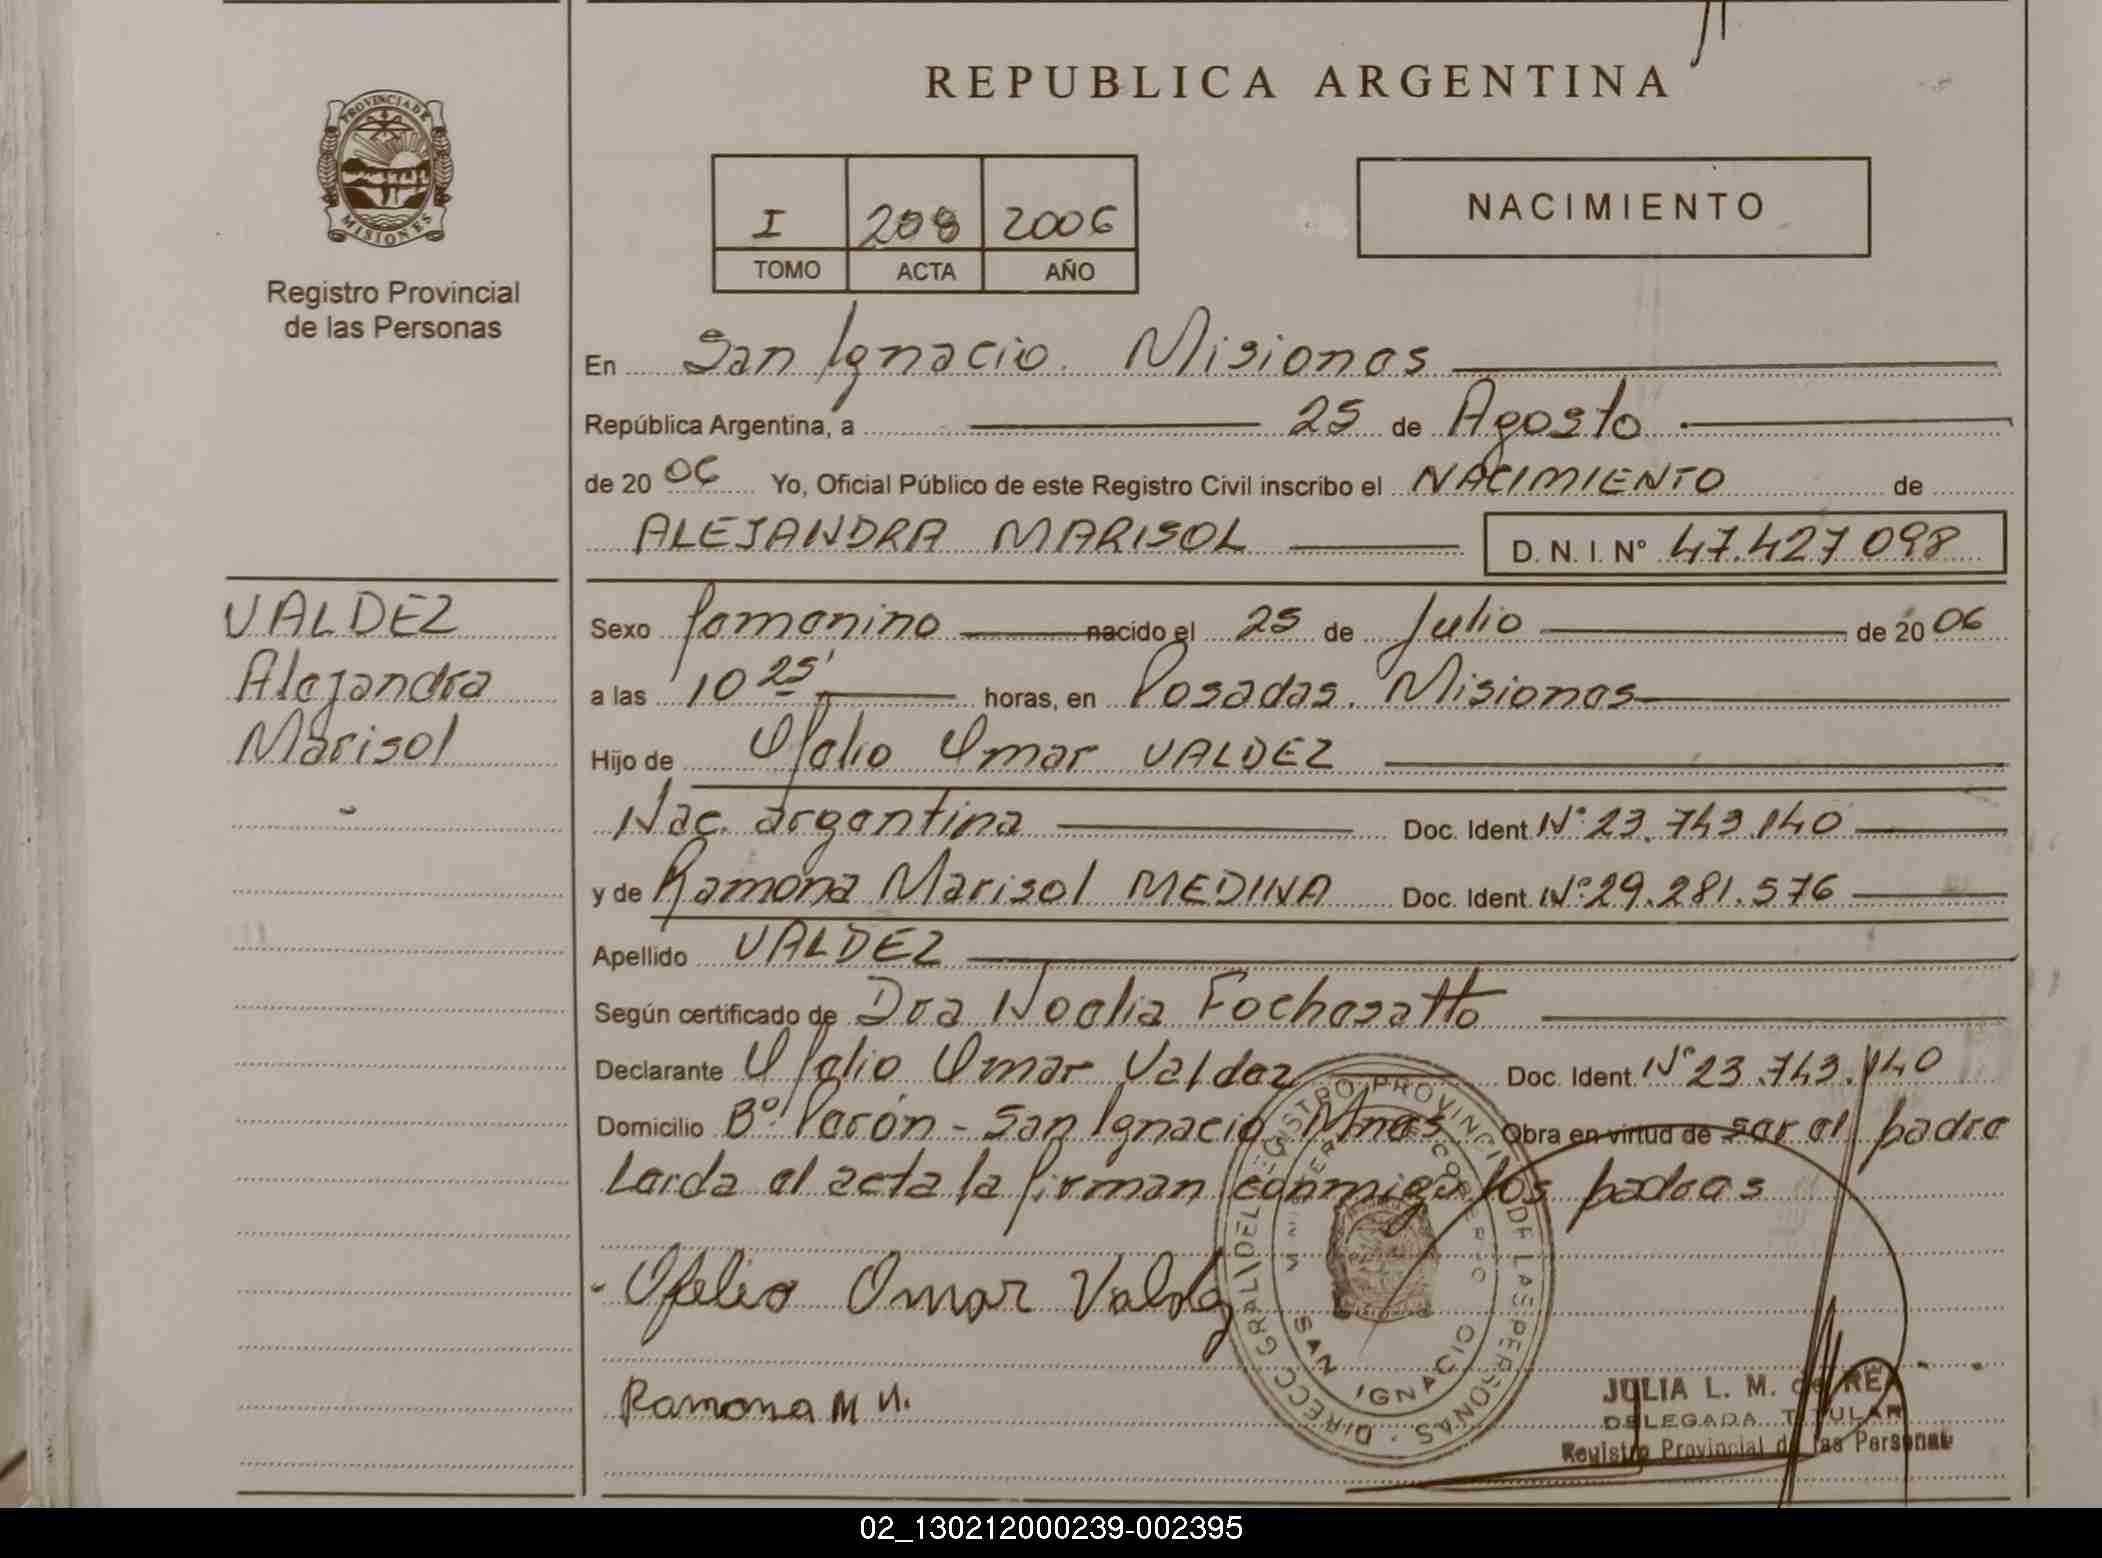 REPUBLICA ARGENTINA
PROVINCIA DE MISIONES
Registro Provincial
de las Personas
I 2006
TOMO ACTA AÑO
NACIMIENTO
En San Ignacio. Misiones
República Argentina, a 25 de Agosto
de 20 06 Yo, Oficial Público de este Registro Civil inscribo el NACIMIENTO de
ALEJANDRA MARISOL D. N. I. Nº 47.427 098
VALDEZ
Alejandra
Marisol
Sexo femenino nacido el 25 de Julio de 20 06
a las 10 25' horas, en Posadas. Misiones
Hijo de Ofelio Omar VALDEZ
Nac. argentina Doc. Ident. Nº 23.743.140
y de Ramona Marisol MEDINA Doc. Ident. Nº 29.281.576
Apellido VALDEZ
Según certificado de Dra Noelia Fochesatto
Declarante Ofelio Omar Valdez Doc. Ident. Nº 23.743.140
Domicilio Bº Perón - San Ignacio Mnes Obra en virtud de ser el padre
Leida el acta la firman conmigo los padres
Ofelio Omar Valdez
Ramona M M.
DIRECC. GRAL. DEL REGISTRO PROVINCIAL DE LAS PERSONAS
SAN IGNACIO
JULIA L. M. de REA
DELEGADA TITULAR
Registro Provincial de las Personas
02_130212000239-002395